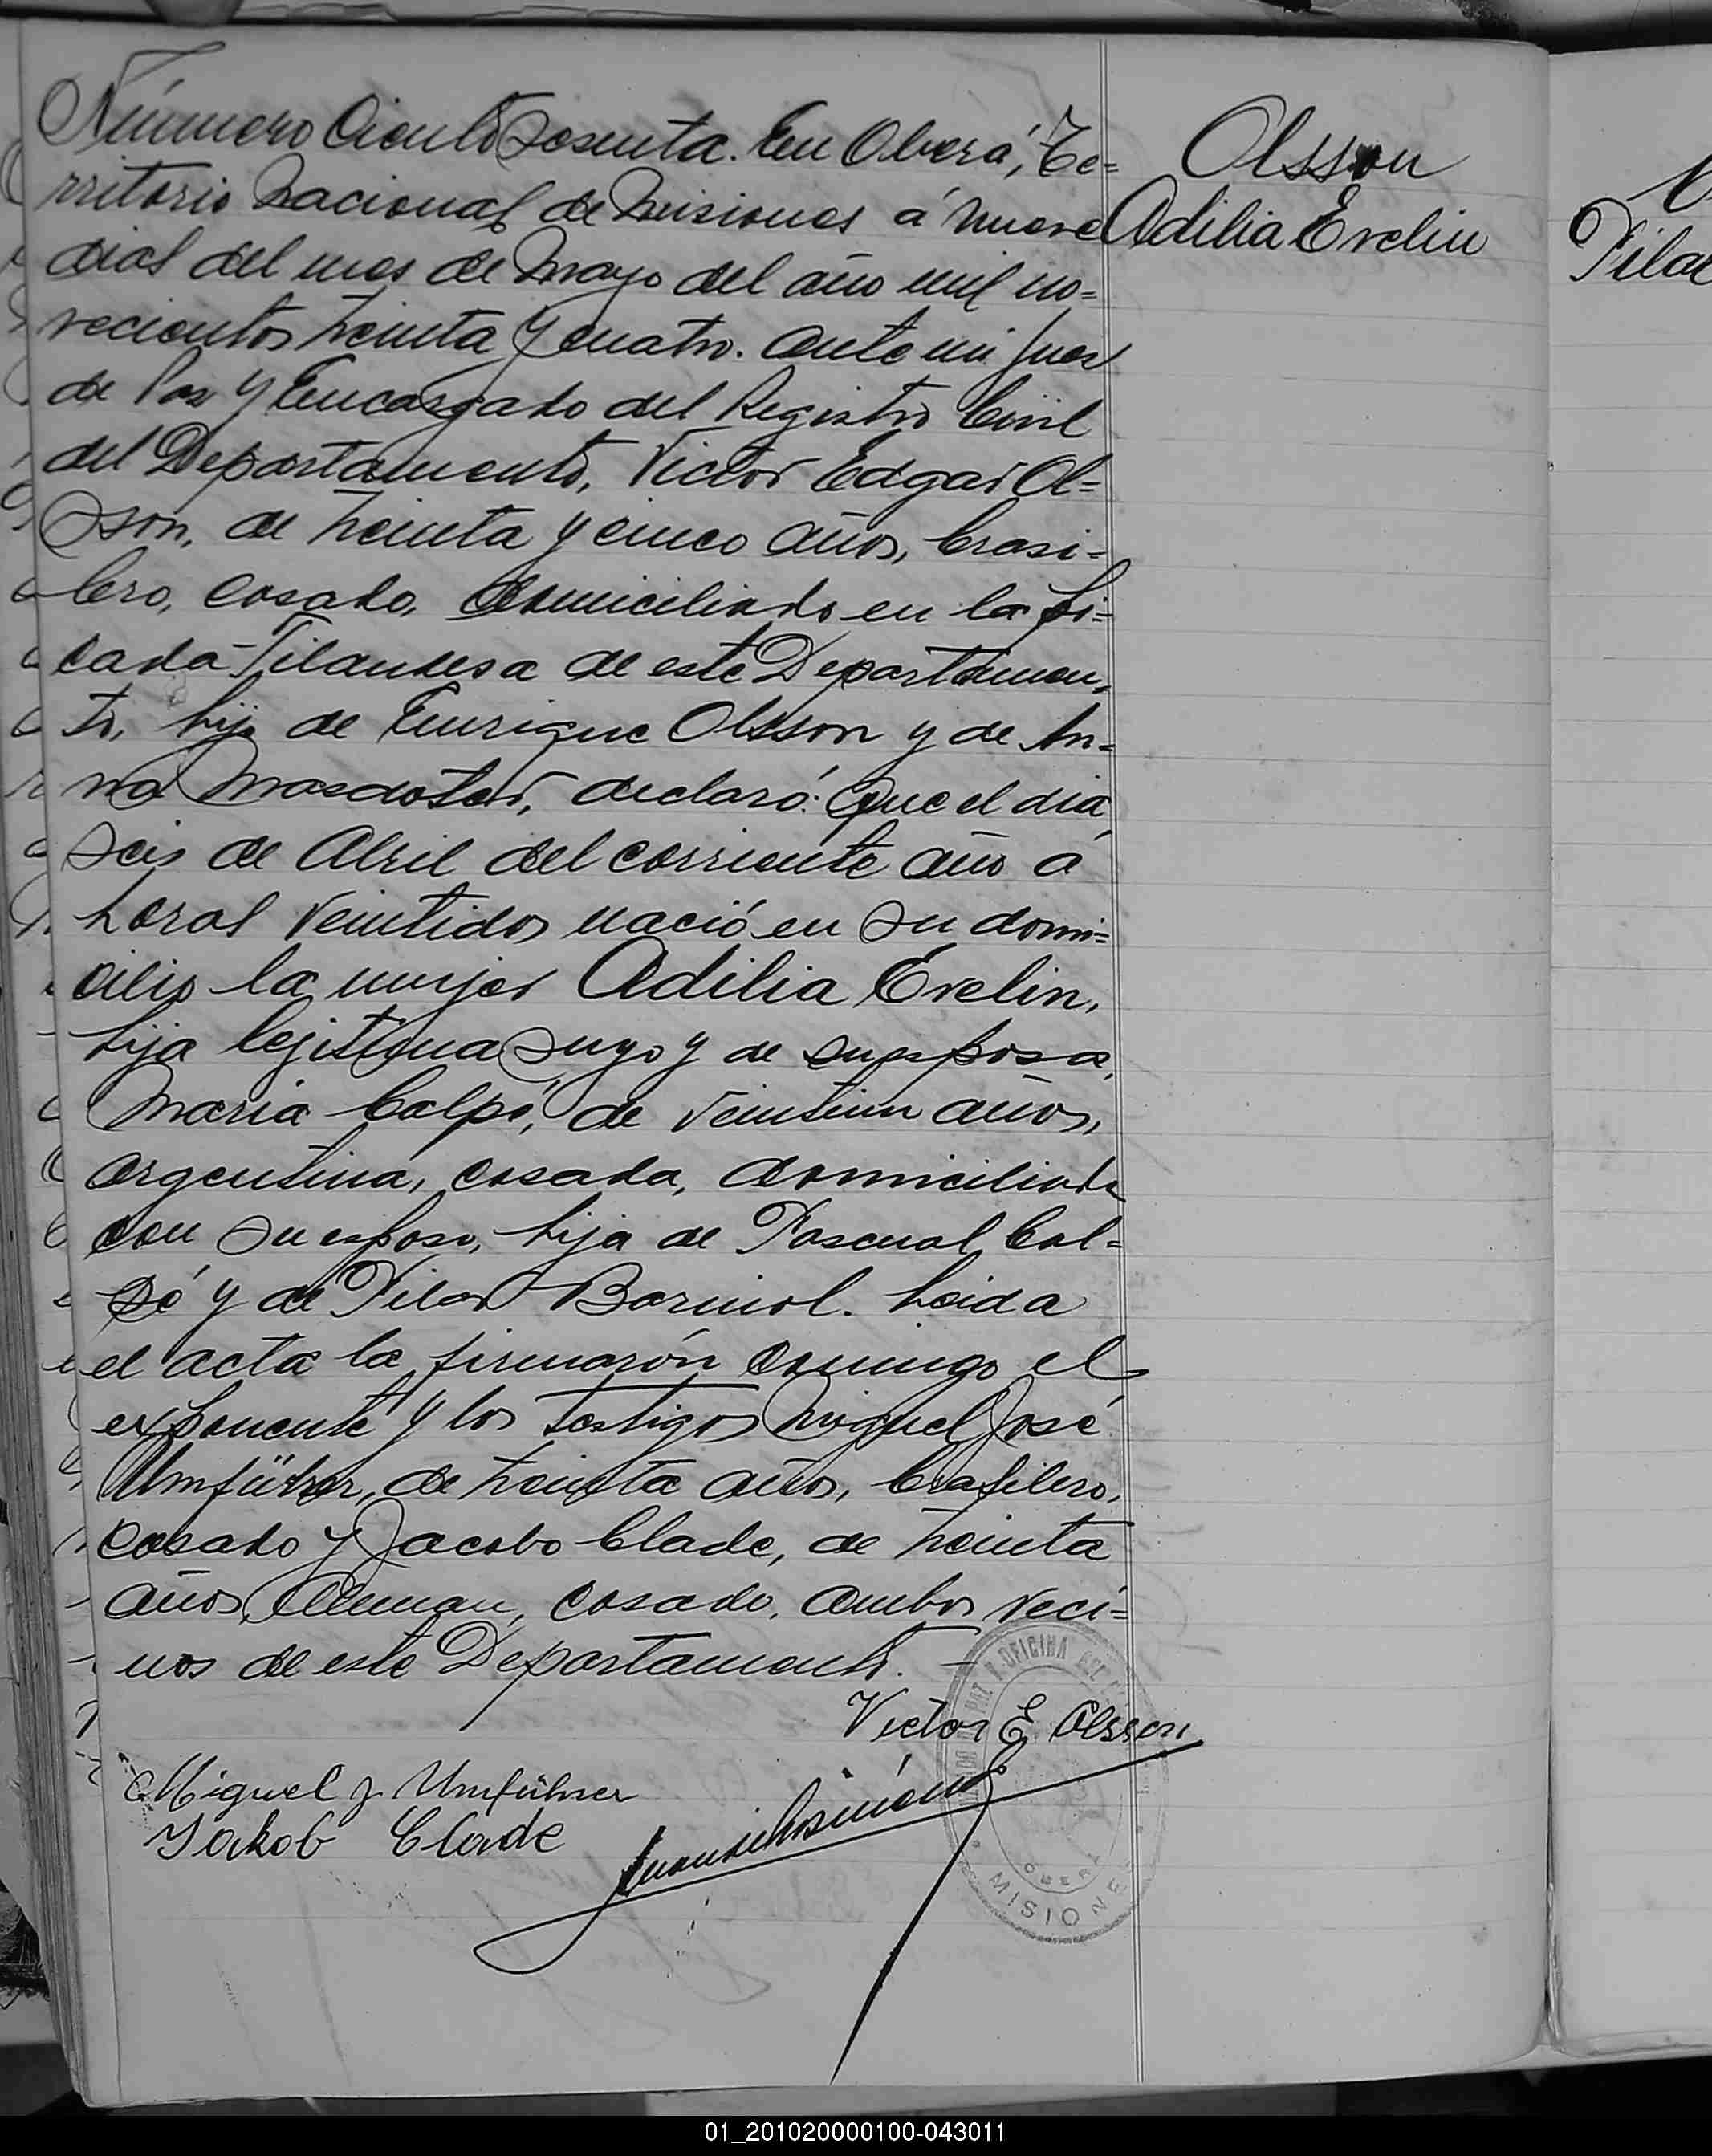 Número Ciento Sesenta. En Oberá, Te=
rritorio Nacional de Misiones á nueve
dias del mes de Mayo del año mil no=
vecientos treinta y cuatro. ante mi Juez
de Paz y Encargado del Registro Civil
del Departamento, Victor Edgar Ol=
sson, de treinta y cinco años, brasi=
lero, casado, domiciliado en la pi=
cada Filandesa de este Departamen=
to, hijo de Enrique Olsson y de An=
na, declaró: Que el dia
seis de Abril del corriente año a
horas veintidos nació en su domi=
cilio la mujer Adilia Evelin,
hija lejitima suya y de su esposa,
Maria Calpé, de veintiun años,
argentina, casada, domiciliada
con su esposo, hija de Pascual Cal=
pé y de Pilar. Leida
el acta la firmarón conmigo el
exponente y los testigos Miguel José
Umführer, de treinta años, brasilero,
casado y Jacobo Clade, de treinta
años, Aleman, casado, ambos veci=
nos de este Departamento. —
Victor E. Olsson
Miguel J. Umführer
Jakob Clade
OFICINA
OBERA
MISIONES
Olsson
Adilia Evelin
Pilar
01_201020000100-043011